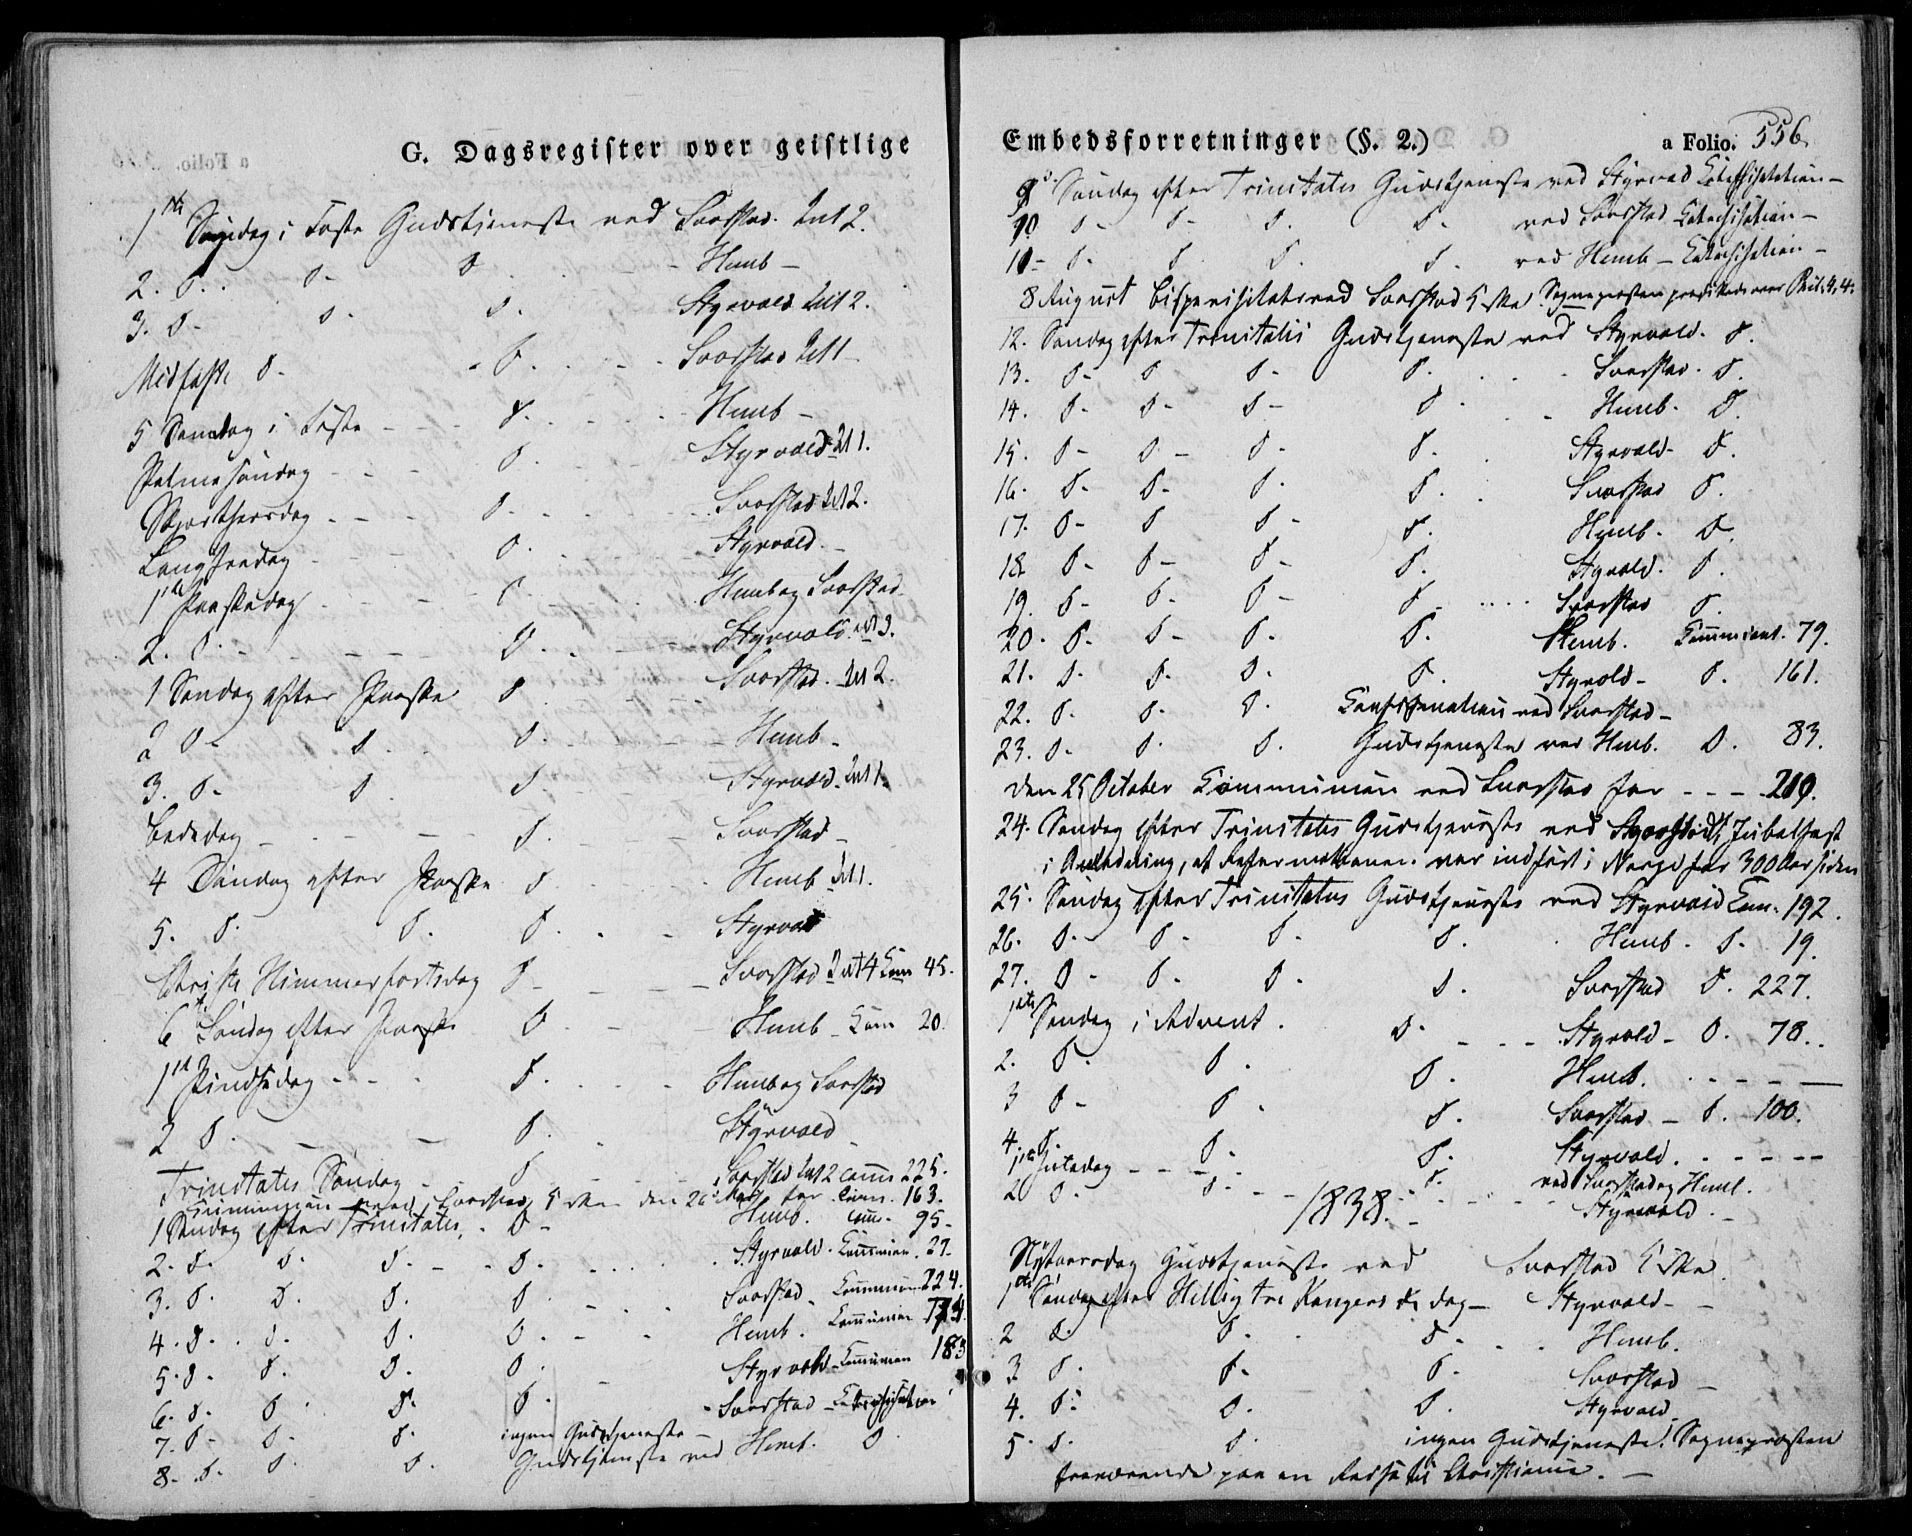 G. Dagsregister over geistlige
1ste Søndag i Faste Gudstjeneste ved Svarstad. Int 2.
2. D. D - D - Hemb -
3. D - D D. Styrvold Int 2.
Midfaste D - D. Svarstad Int 1
5 Søndag i Faste - - - D. - Hemb -
Palmesøndag - - - D. Styrvold Int 1.
Skjærthorsdag - - - D. Svarstad Int 2.
Langfredag - - - D. Styrvold -
1ste Paaskedag - - - D. Hemb og Svarstad
2. D. - - - D. - Styrvold Int 3.
1 Søndag efter Paaske D - Svarstad. Int 2.
2 D - D. D. - Hemb -
3. D - D. D. - Styrvold. Int 1.
Bededag - - - D. - Svarstad -
4 Søndag efter Paaske D. Hemb Int 1.
5. D. D. D. - - Styrvold
Christi Himmelfartsdag D - - - Svarstad Int 4 Com 45.
6 Søndag efter Paaske D - - Hemb - Com 20.
1ste Pindsedag - - - D. - - Hemb og Svarstad
2 D. - - D. Styrvold
Trinitatis Søndag - D - - Svarstad Int 2 Comm 225.
Communion ved Svarstad Kirke den 26 Mai for Com. 163.
1 Søndag efter Trinitatis. - D - Hemb. Com - 95 -
2. D. D. D. - - D. Styrvold. Communion. 27.
3. D. D. D. D - - Svarstad - Communion 224.
4. D. D. D. D. - - Hemb. Communion
5. D - D. D. D. Styrvold - Communion 183
6. D. D D. D. - Svarstad - Catechisation
7. D - D. D. ingen Gudstjeneste -
8. D. D. D. Gudstjeneste ved Hemb. D.
Embedsforretninger (§. 2.)
a Folio. 556.
9 Søndag efter Trinitatis Gudstjeneste ved Styrvold Catechisation -
10 D - D - D. D - ved Svarstad Catechisation -
11 - D - D D. D. ved Hemb - Catechisation -
8 August Bispevisitats ved Svarstad Kirke. Sognepresten prædikede over Phil. 4, 4.
12. Søndag efter Trinitatis Gudstjeneste ved Styrvold. D.
13. D - D D - D. Svarstad. D.
14. D - D - D - D. Hemb. D.
15. D - D - D - D. Styrvold - D.
16. D - D - D. D. Svarstad D.
17. D - D D - D. Hemb. D.
18 D - D - D - D. Styrvold. D.
19. D - D - D - D. Svarstad D.
20. D. D - D. D. Hemb. Communicant. 79.
21. D. D. D. D. Styrvold - D. 161.
22. D. D. D. Confirmation ved Svarstad -
23. D - D. D. Gudstjeneste ved Hemb. D. 83.
den 25 October Communion ved Svarstad for - - - 219.
24. Søndag efter Trinitatis Gudstjeneste ved Svarstad, Jubelfest
i Anledning, at Reformationen var indført i Norge for 300 Aar siden
25. Søndag efter Trinitatis Gudstjeneste ved Styrvold Com. 192.
26. D - D - D - D. Hemb. D. 19.
27. D - D - D. D. Svarstad D. 227.
1ste Søndag i Advent. D - - - Styrvold - D. 78.
2. D. D. D. Hemb. - - -
3 D - D. D. Svarstad - D. 100.
4. D. D. D. Styrvold. - - -
1ste Juledag - - - D. ved Svarstad og Hemb.
2 D. D. - - Styrvold. -
1838.
Nytaarsdag Gudstjeneste ved Svarstad Kirke.
1ste Søndag efter Hellig tre Kongers dag - Styrvold -
2 D. D. D - Hemb.
3 D. D - D. Svarstad -
4. D. D. D. Styrvold
5. D. D. ingen Gudstjeneste. Sognepræsten
fraværende paa en Reise til Christiania. -